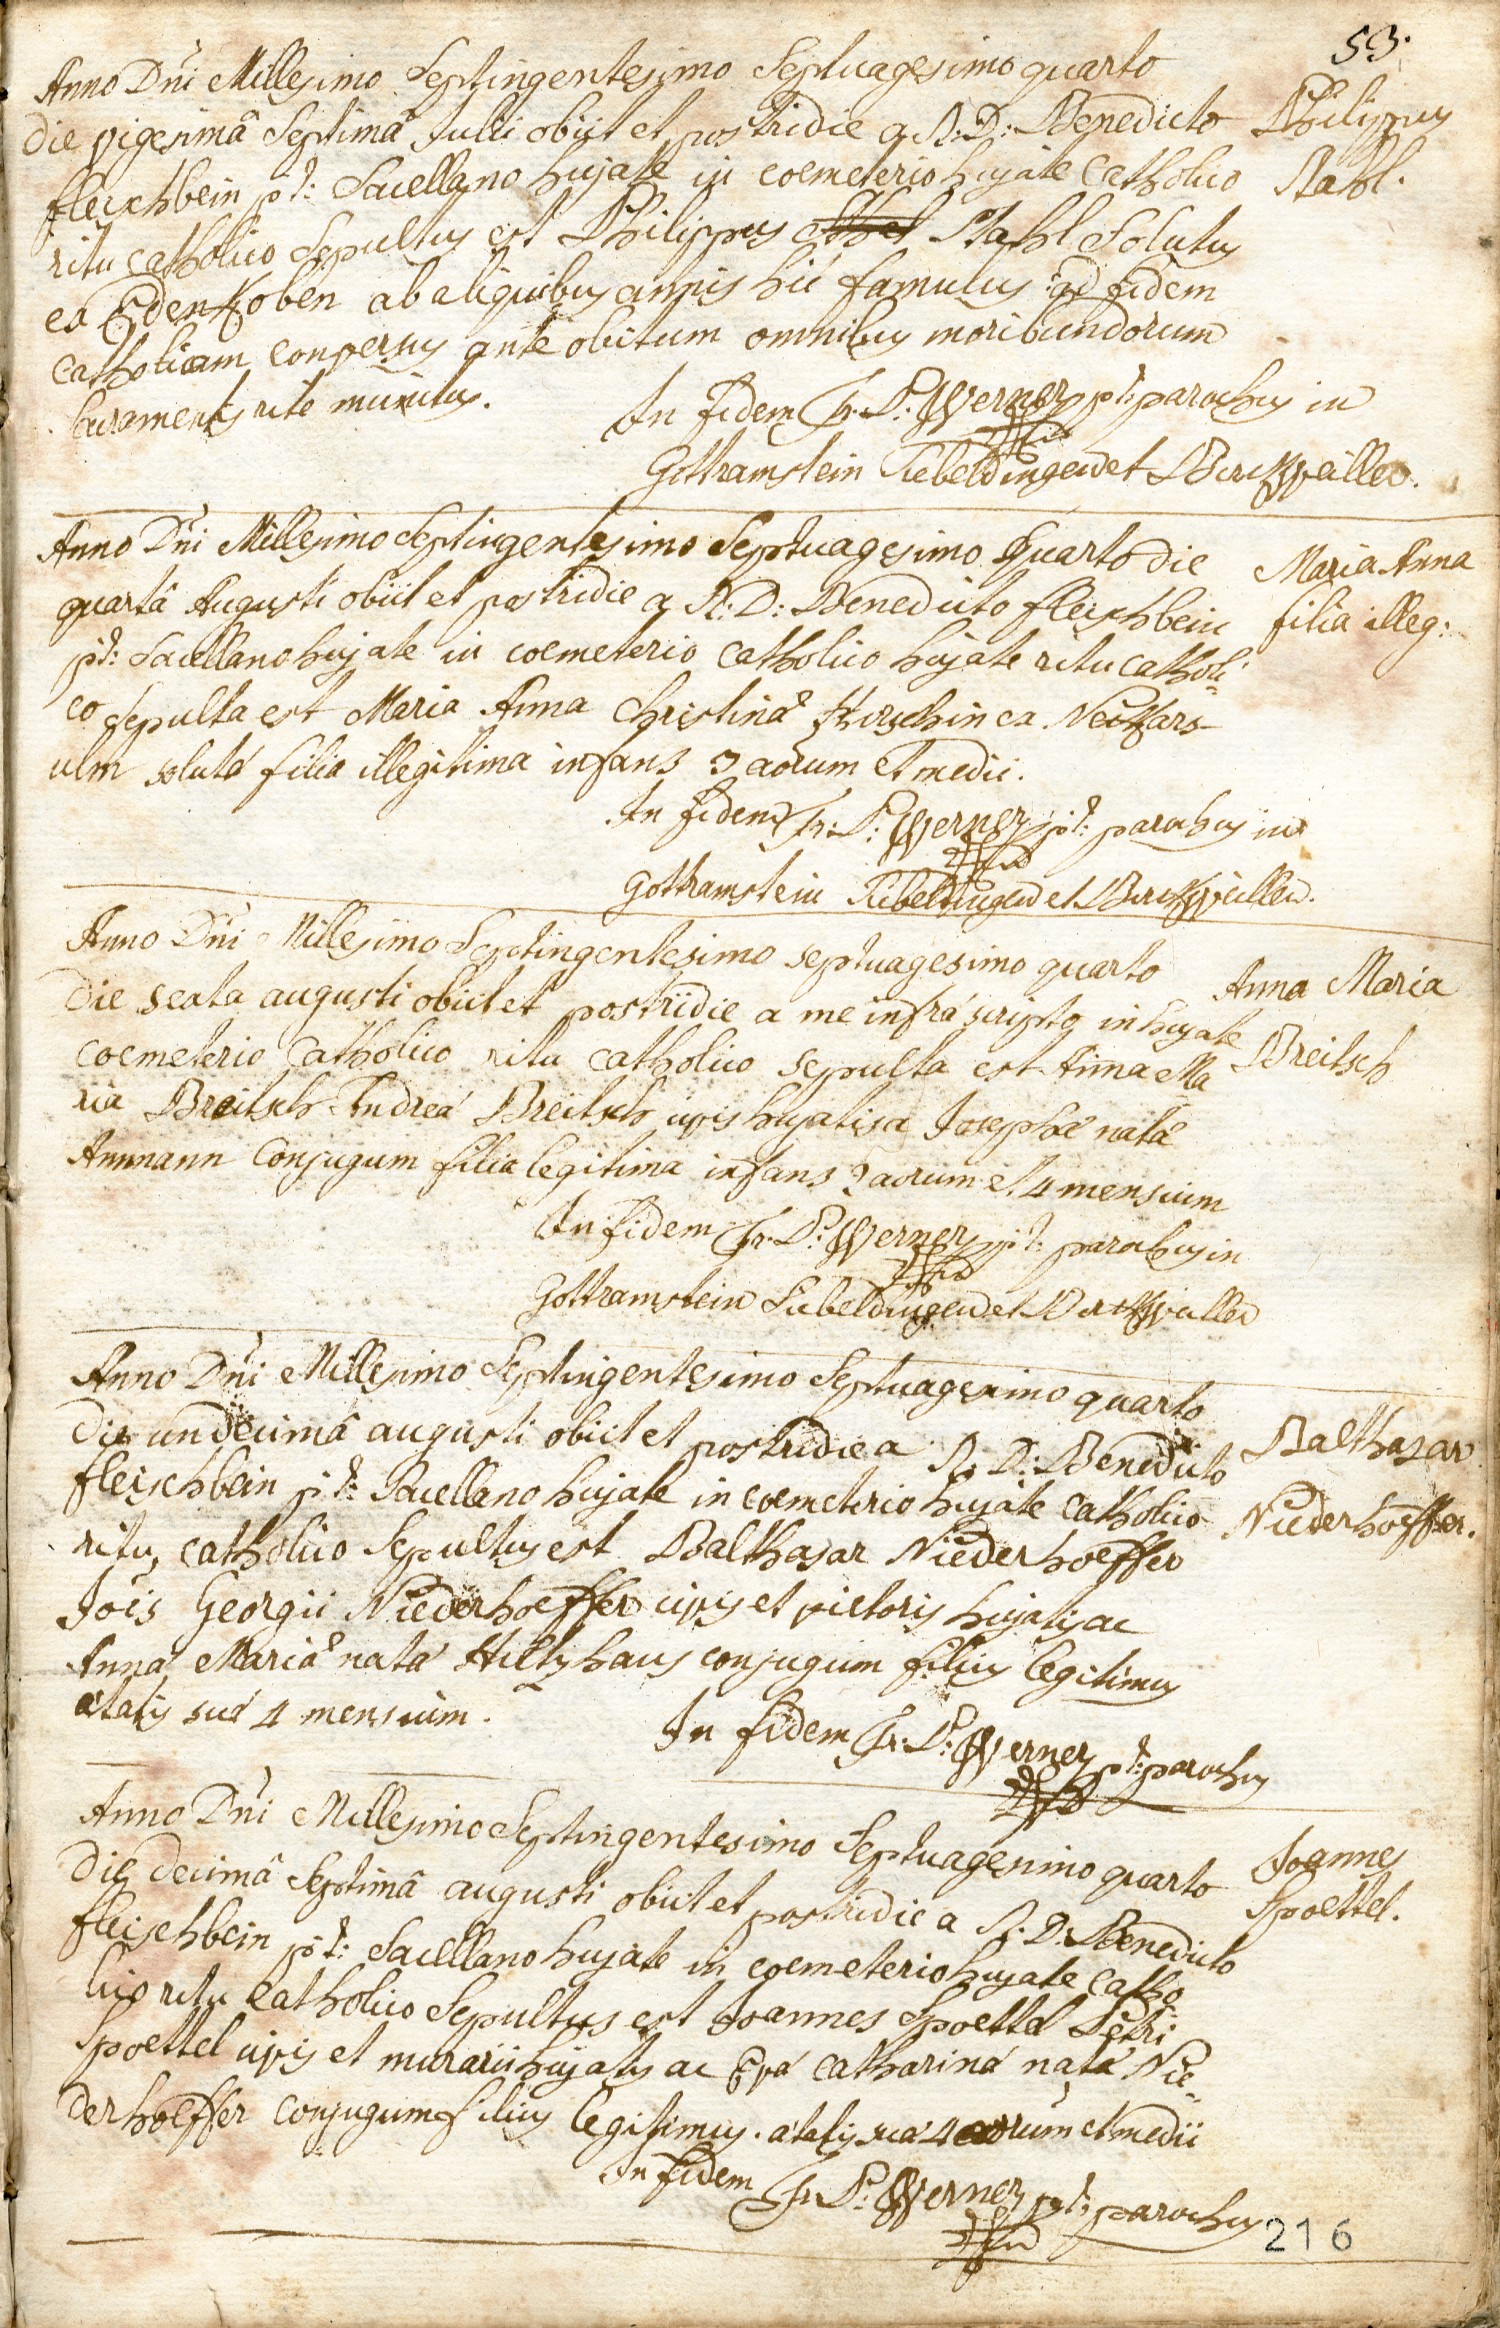 53.
Anno Dni Millesimo Septingentesimo Septuagesimo quarto
die vigesimâ Septimâ Julii obiit et postridie a R: D: Benedicto
Philippus
fleischbein p:t: Sacellano hujate in coemeterio hujate Catholico
Stahl.
ritu catholico Sepultus est Philippus Stahl Solutus
ex Edenkoben ab aliquibus annis hic famulus ad fidem
catholicam conversus ante obitum omnibus moribundorum
sacramentis rite munitus.
In fidem Fr: P: Werner p:t: parochus in
Gottramstein Siebeldingen et Birckweiller.
Anno Dni Millesimo Septingentesimo Septuagesimo Quarto die
Maria Anna
quartâ Augusti obiit et postridie a R: D: Benedicto fleischbein
filia illeg:
p:t: Sacellano hujate in coemeterio catholico hujate ritu catholi
co sepulta est Maria Anna Christinæ Hirschin ex Neckars
ulm solutæ filia illegitima infans 3 aorum et medii.
In fidem Fr: P: Werner p:t: parochus in
Gottramstein Siebeldingen et Birckweiller.
Anno Dni Millesimo Septingentesimo septuagesimo quarto
Anna Maria
die sexta augusti obiit et postridie a me infra scripto in hujate
Breitsch
coemeterio Catholico ritu catholico sepulta est Anna Ma
ria Breitsch Andreæ Breitsch civis hujatis a Josephæ natæ
Ammann Conjugum filia legitima infans 2 aorum et 4 mensium
In fidem Fr: P: Werner p:t: parochus in
Gottramstein Siebeldingen et Birckweiller
Anno Dni Millesimo Septingentesimo Septuagesimo quarto
die undecimâ augusti obiit et postridie a R: D: Benedicto
Balthasar
fleischbein p:t: Sacellano hujate in coemeterio hujate catholico
Niederhoeffer.
ritu catholico Sepultus est Balthasar Niederhoeffer
Jois Georgii Niederhoeffer civis et vietoris hujatis ac
Annæ Mariæ natæ Hiltzhaus conjugum filius legitimus
ætatis suæ 4 mensium.
In fidem Fr: P: Werner p:t: parochus
Anno Dni Millesimo Septingentesimo Septuagesimo quarto
Joannes
die decimâ Septimâ augusti obiit et postridie a R: D: Benedicto
Spoettel.
fleischbein p:t: Sacellano hujate in coemeterio hujate catho
lico ritu catholico Sepultus est Joannes Spoettel Petri
Spoettel civis et murarii hujatis ac Evæ catharinæ natæ Nie
derhoeffer conjugum filius legitimus. ætatis suæ 4 aorum et medii
In fidem Fr: P: Werner p:t: parochus
216